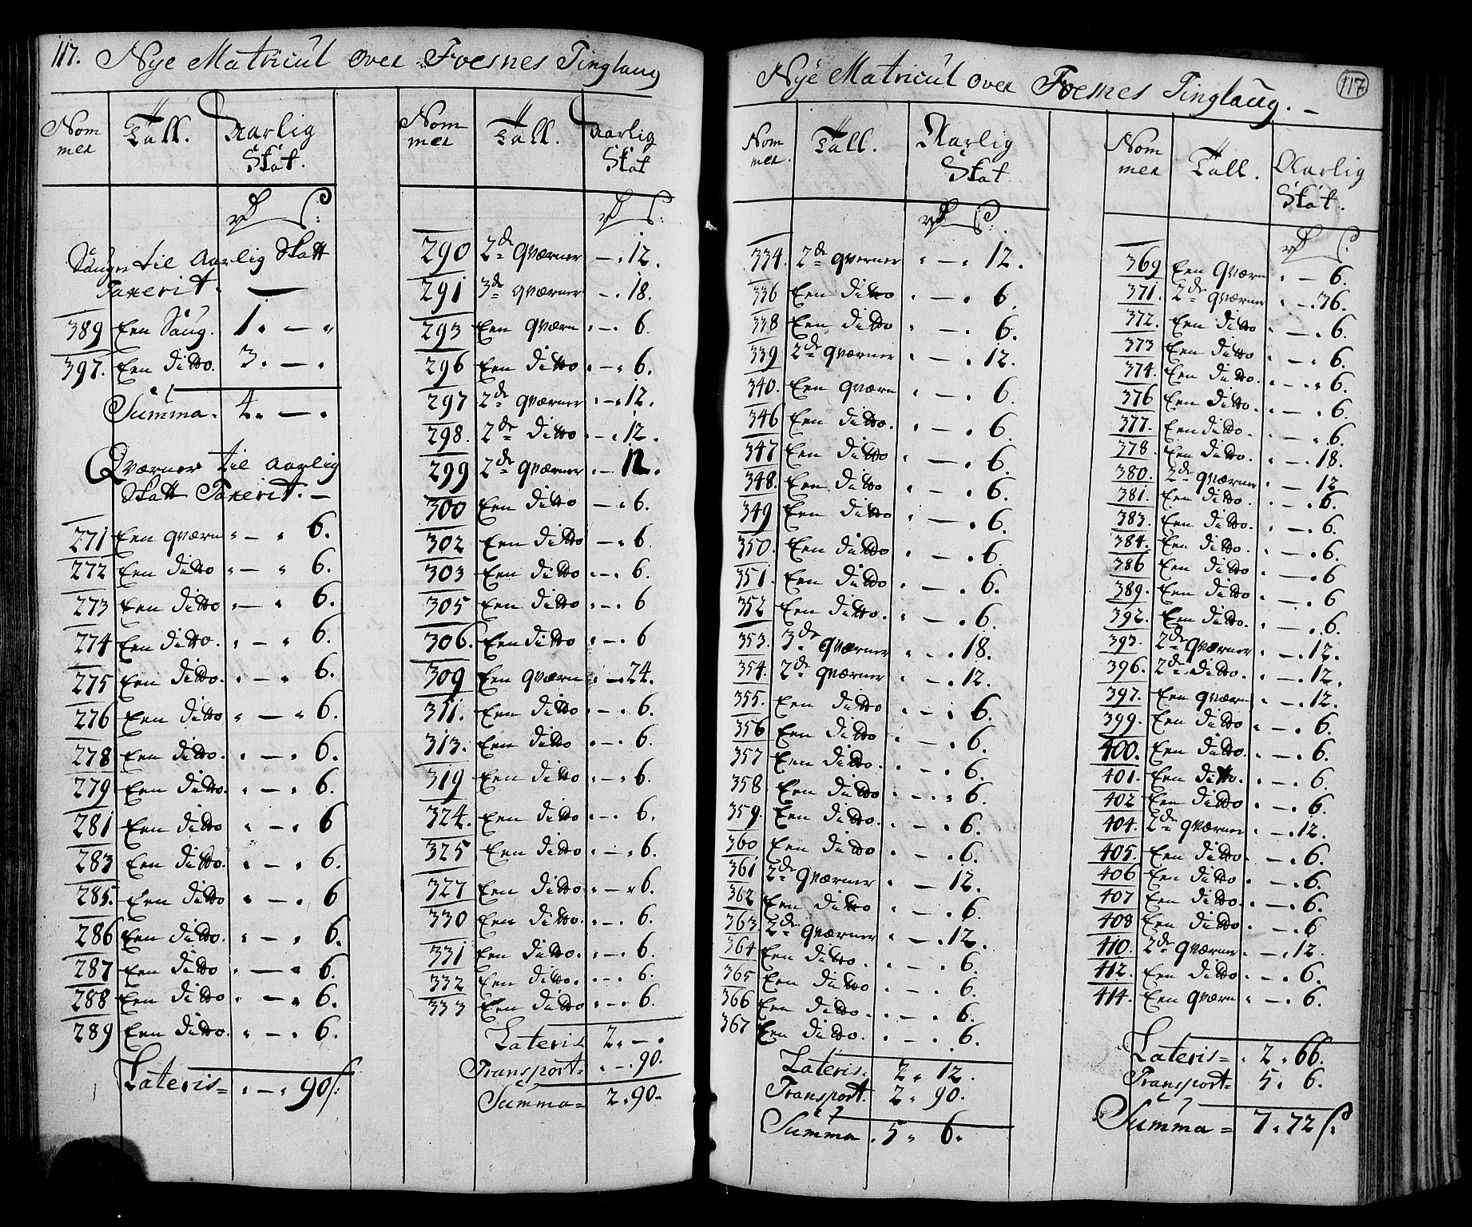 117. Nye Matricul over Foesnes Tinglaug
Nom mer Tall. Aarlig Skat.
rd s:
Sauger til Aarlig Skatt
Taxerit. —
389 Een Saug. 1. — "
397. Een ditto. 3. — .
Summa. 4. — .
Qværner til Aarlig
Skatt Taxerit. —
271 Een qværn " — " 6.
272 Een ditto " — " 6.
273 Een ditto " — " 6.
274 Een ditto. " — " 6.
275 Een ditto. " — " 6.
276 Een ditto " — " 6.
278 Een ditto " — " 6.
279 Een ditto. " — " 6.
281 Een ditto " — " 6
283 Een ditto. " — " 6.
285. Een ditto " — " 6
286 Een ditto. " — " 6.
287 Een ditto " — " 6.
288 Een ditto " — " 6.
289 Een ditto. " — " 6.
Lateris = " — " 90 s:
Nom mer Tall. Aarlig Skat.
rd s:
290 2de qværner — . 12.
291 3de qværner — . 18.
293 Een qværn . — . 6.
296 Een ditto . — . 6.
297 2de qværner . — . 12.
298. 2de ditto . — . 12.
299 2de qværner . — 12.
300 Een ditto . — . 6.
302 Een ditto . — . 6.
303 Een ditto . — . 6.
305 Een ditto . — . 6
306. Een ditto . — . 6
309 Een qværn . — . 24.
311. Een ditto . — . 6.
313. Een ditto . — . 6.
319 Een ditto . — . 6.
324. Een ditto . — . 6.
325 Een ditto . — . 6.
327 Een ditto . — " 6.
330 Een ditto. . — . 6.
331 Een ditto . — . 6.
332 Een ditto . — . 6.
333 Een ditto . — . 6.
Lateris 2. — .
Transport. . — . 90.
Summa = 2. 90.
Nye Matricul over Foesnes Tinglaug. —
117
Nom mer. Tall. Aarlig Skat.
rd s.
334. 2de qværner . — . 12.
336 Een ditto . — . 6.
338 Een ditto . — 6.
339 2de qværner . — . 12.
340. Een qværn . — . 6.
346 Een ditto . — . 6.
347 Een ditto. . — . 6.
348. Een ditto . — . 6.
349 Een ditto . — . 6.
350. Een ditto . — . 6.
351. Een ditto . — . 6.
352 Een ditto. . — . 6.
353. 3de qværner . — . 18.
354. 2de qværner . — . 12.
355. Een ditto. . — . 6.
356 Een ditto . — . 6.
357 Een ditto. . — . 6.
358 Een ditto . — . 6.
359. Een ditto. . — . 6.
360 Een ditto. . — . 6.
361 2de qværner . — 12.
362 Een ditto. . — . 6.
363 2de qværner . — . 12.
364 Een ditto . — . 6.
365 Een ditto. . — . 6.
366 Een ditto . — . 6.
367 Een ditto. . — . 6.
Lateris. 2. 12.
Transport 2. 90.
Summa . 5. 6.
Nom mer Tall. Aarlig Skat.
rd s.
369 Een qværn . — 6.
371. 2de qværner . — . 36.
372. Een ditto . — . 6.
373 Een ditto. . — . 6.
374. Een ditto. . — . 6.
376 Een ditto. . — . 6.
377. Een ditto. . — . 6.
378. Een ditto. . — 18.
380. 2de qværner . — 12
381. Een ditto. . — . 6.
383. Een ditto . — . 6
384. Een ditto. . — . 6.
386 Een ditto . — . 6
389. Een ditto. . — . 6
392. Een ditto. . — . 6.
393. 2de qværner . — . 12.
396. 2de ditto. . — . 12.
397. Een qværn . — . 12
399. Een ditto . — . 6
400. Een ditto . — . 6.
401. Een ditto. . — . 6.
402 Een ditto. . — . 6.
404. 2de qværner . — . 12.
405. Een ditto. . — . 6.
406 Een ditto . — . 6.
407 Een ditto. . — . 6.
408 Een ditto . — . 6
410. 2de qværner . — . 12.
412. Een ditto . — . 6.
414. Een qværn . — . 6.
Lateris = . 2. 66.
Transport = 5. 6.
Summa = 7. 72 s: